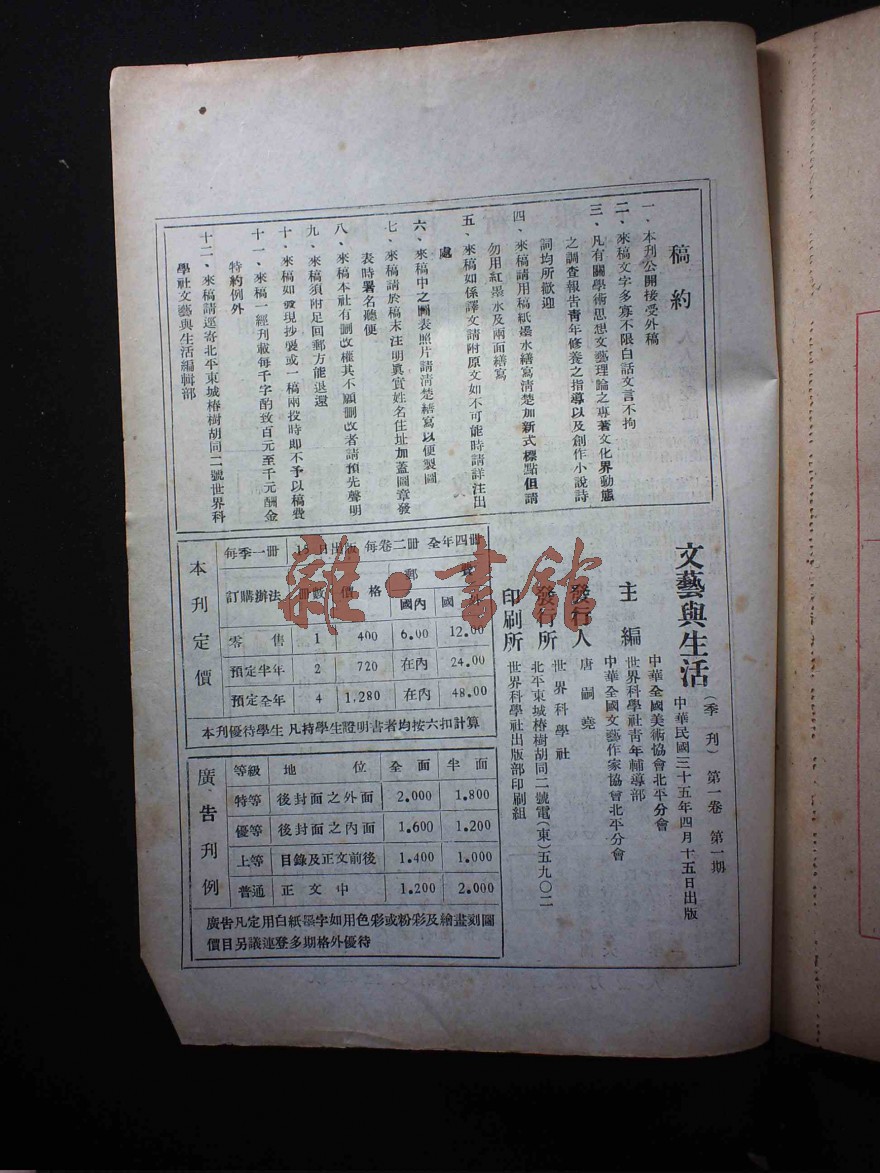 稿約
一、本刊公開接受外稿
二、來稿文字多寡不限白話文言不拘
三、凡有關學術思想文藝理論之專著文化界動態
之調查報告靑年修養之指導以及創作小說詩
詞均所歡迎
四、來稿請用稿紙墨水繕寫淸楚加新式標點但請
勿用紅墨水及兩面繕寫
五、來稿如係譯文請附原文如不可能時請詳注出
處
六、來稿中之圖表照片請淸楚繕寫以便製圖
七、來稿請於稿末注明眞實姓名住址加蓋圖章發
表時署名聽便
八、來稿本社有刪改權其不願刪改者請預先聲明
九、來稿須附足回郵方能退還
十、來稿如發現抄襲或一稿兩投時即不予以稿費
十一、來稿一經刊載每千字酌致百元至千元酬金
特約例外
十二、來稿請逕寄北平東城椿樹胡同二號世界科
學社文藝與生活編輯部
文藝與生活(季刊) 第一卷 第一期
中華民國三十五年四月十五日出版
主編
中華全國美術協會北平分會
世界科學社靑年輔導部
中華全國文藝作家協會北平分會
發行人 唐嗣堯
發行所 世界科學社
北平東城椿樹胡同二號電(東)五九〇二
印刷所 世界科學社出版部印刷組
本刊定價
每季一冊 15日出版 每卷二冊 全年四冊
訂購辦法 冊數 價格 郵費
國內 國
零售 1 400 6.00 12.00
預定半年 2 720 在內 24.00
預定全年 4 1,280 在內 48.00
本刊優待學生凡持學生證明書者均按六扣計算
廣告刊例
等級 地位 全面 半面
特等 後封面之外面 2.000 1.800
優等 後封面之內面 1.600 1.200
上等 目錄及正文前後 1.400 1.000
普通 正文中 1.200 2.000
廣告凡定用白紙墨字如用色彩或粉彩及繪畫刻圖
價目另議連登多期格外優待
雜·書館